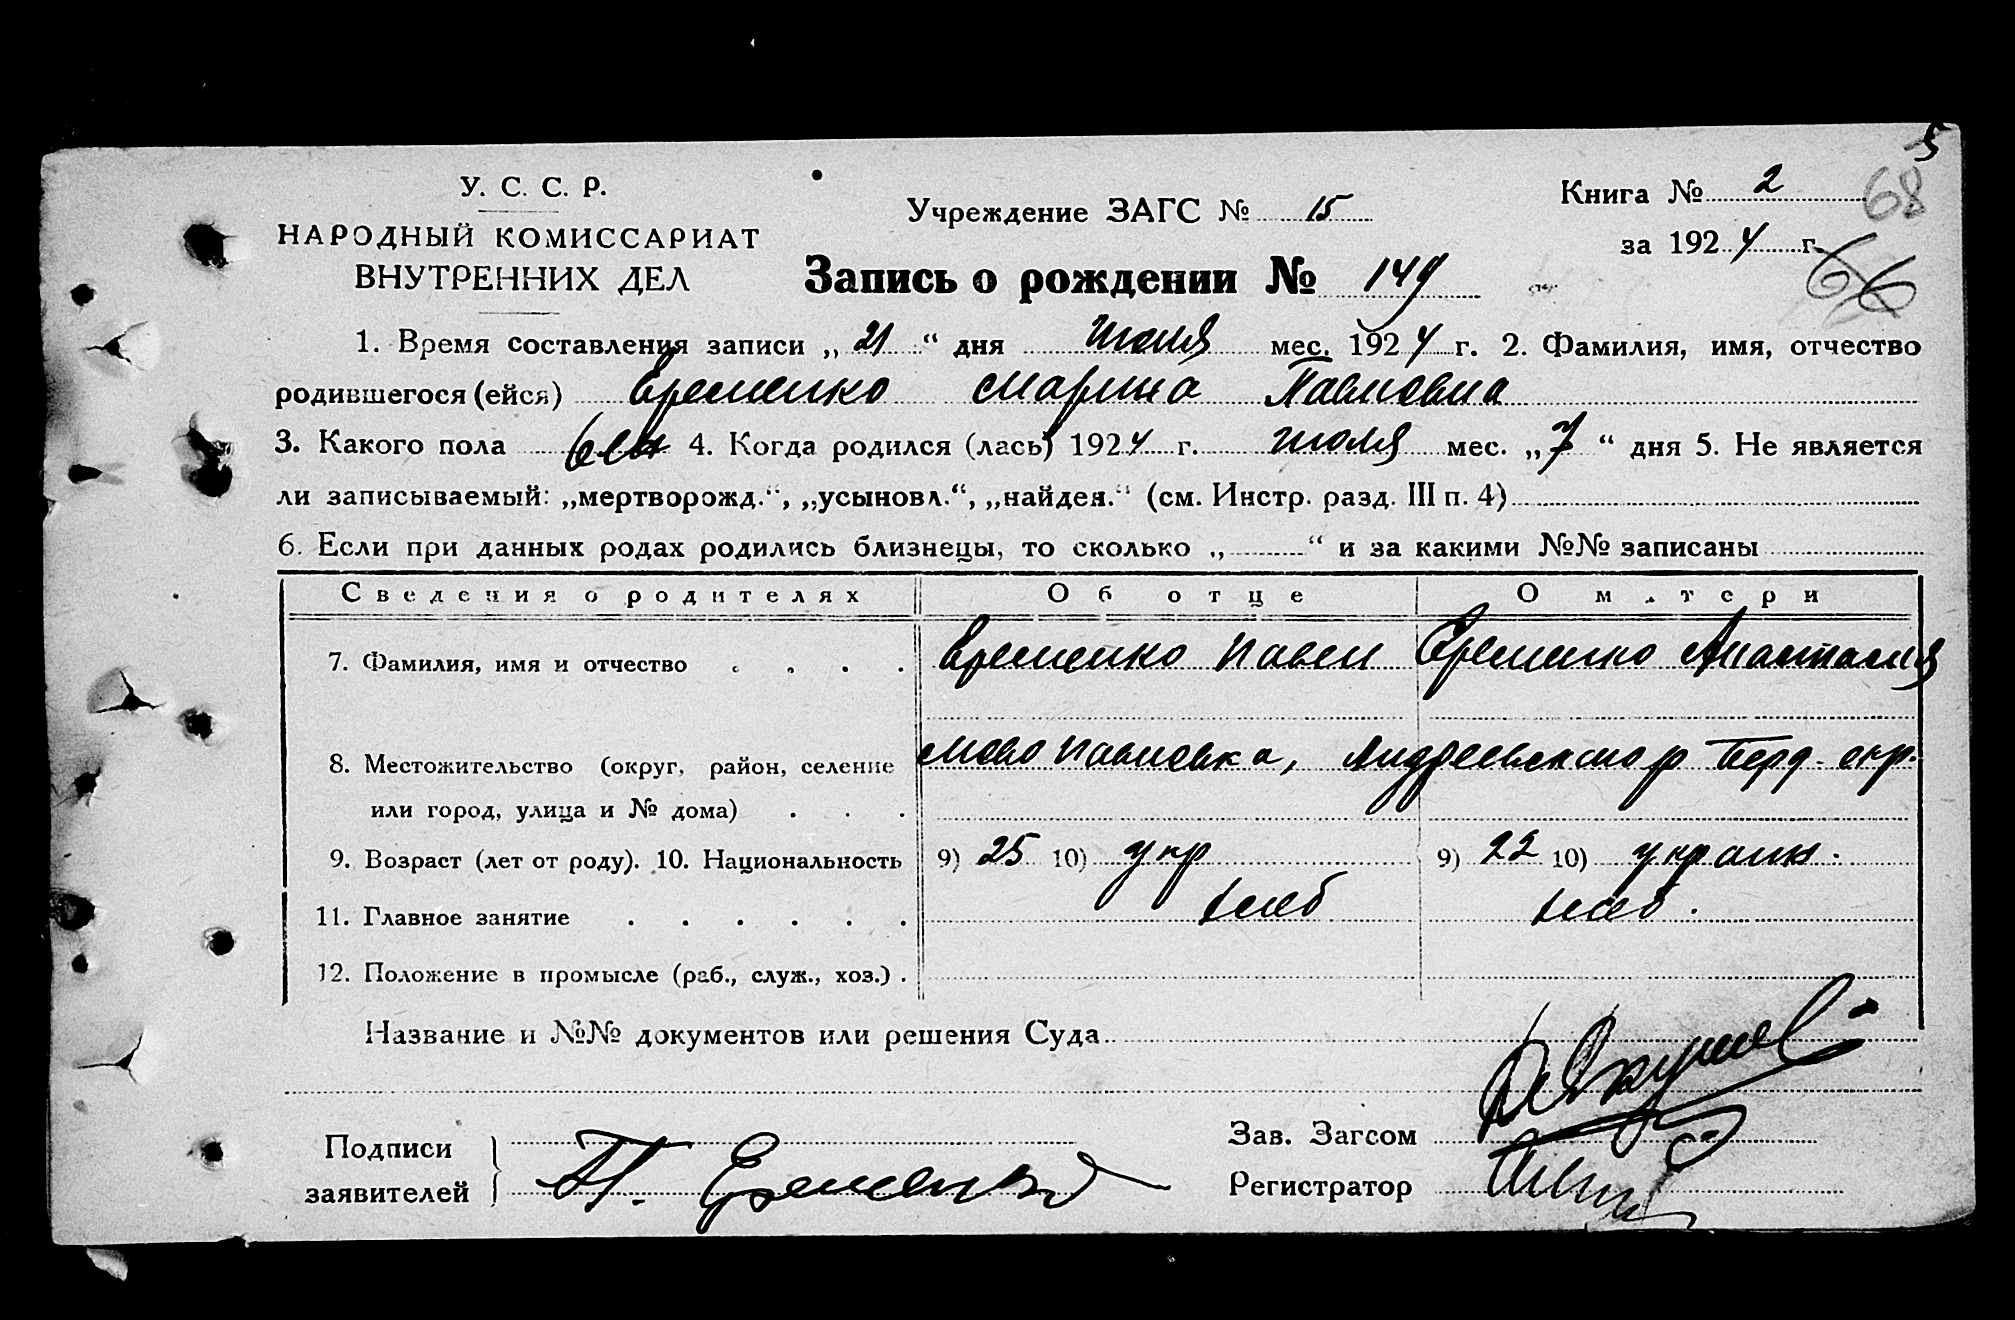 5
У. С. С. Р.
Учреждение ЗАГС № 15
Книга № 2
68
НАРОДНЫЙ КОМИССАРИАТ
за 1924 г.
ВНУТРЕННИХ ДЕЛ
Запись о рождении № 149
66
1. Время составления записи „21“ дня июля мес. 1924 г. 2. Фамилия, имя, отчество
родившегося (ейся) Еременко Марина Павловна
3. Какого пола 4. Когда родился (лась) 1924 г. июля мес. „7“ дня 5. Не является
ли записываемый: „мертворожд.“, „усыновл.“, „найден.“ (см. Инстр. разд. III п. 4)
6. Если при данных родах родились близнецы, то сколько „ “ и за какими №№ записаны
Сведения о родителях Об отце О матери
7. Фамилия, имя и отчество Еременко Павел Еременко Анастасия
8. Местожительство (округ, район, селение Ново Павловка, Андреевского р Берд. окр.
или город, улица и № дома)
9. Возраст (лет от роду). 10. Национальность 9) 25 10) укр 9) 22 10) украин.
11. Главное занятие хлеб хлеб.
12. Положение в промысле (раб., служ., хоз.)
Название и №№ документов или решения Суда
Подписи
Зав. Загсом
заявителей П. Еременко
Регистратор